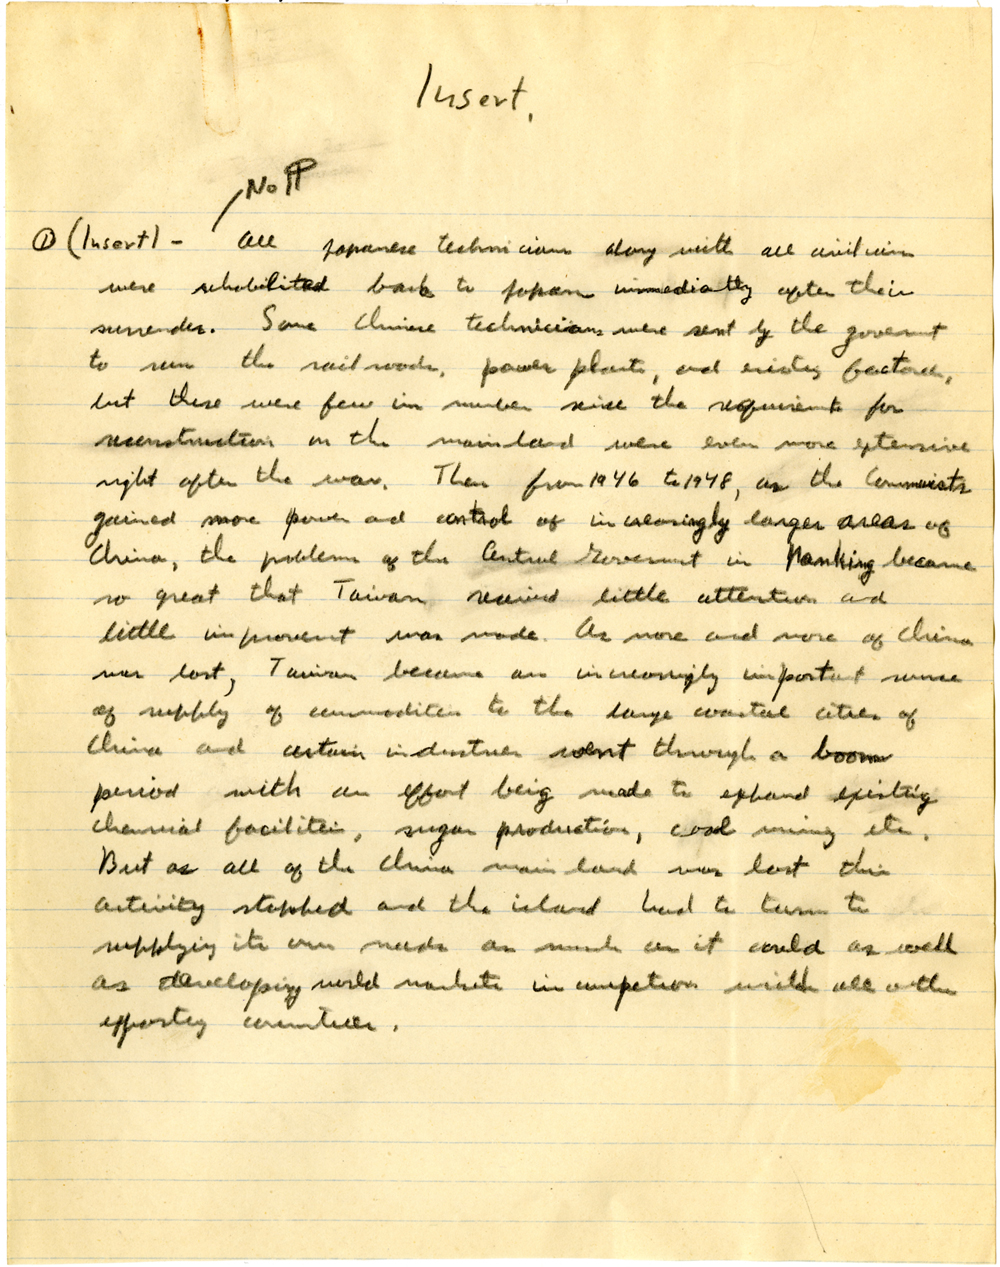 Insert.
No ¶
① (Insert) - All Japanese technicians along with all civilians
were rehabilitated back to Japan immediatly after their
surrender. Some Chinese technicians were sent by the goverment
to run the railroads, power plants, and existing factories,
but these were few in number since the requirements for
reconstruction on the mainland were even more extensive
right after the war. Then from 1946 to 1948, as the Communists
gained more power and control of increasingly larger areas of
China, the problems of the Central Goverment in Nanking became
so great that Taiwan received little attention and
little improvent was made. As more and more of China
was lost, Taiwan became an increasingly important source
of supply of commodities to the large coastal cities of
China and certain industries went through a boom
period with an effort being made to expand existing
chemical facilities, sugar production, coal mining etc.
But as all of the China mainland was lost this
activity stopped and the island had to turn to
supplying its own needs as much as it could as well
as developing world markets in competion with all other
exporting countries.